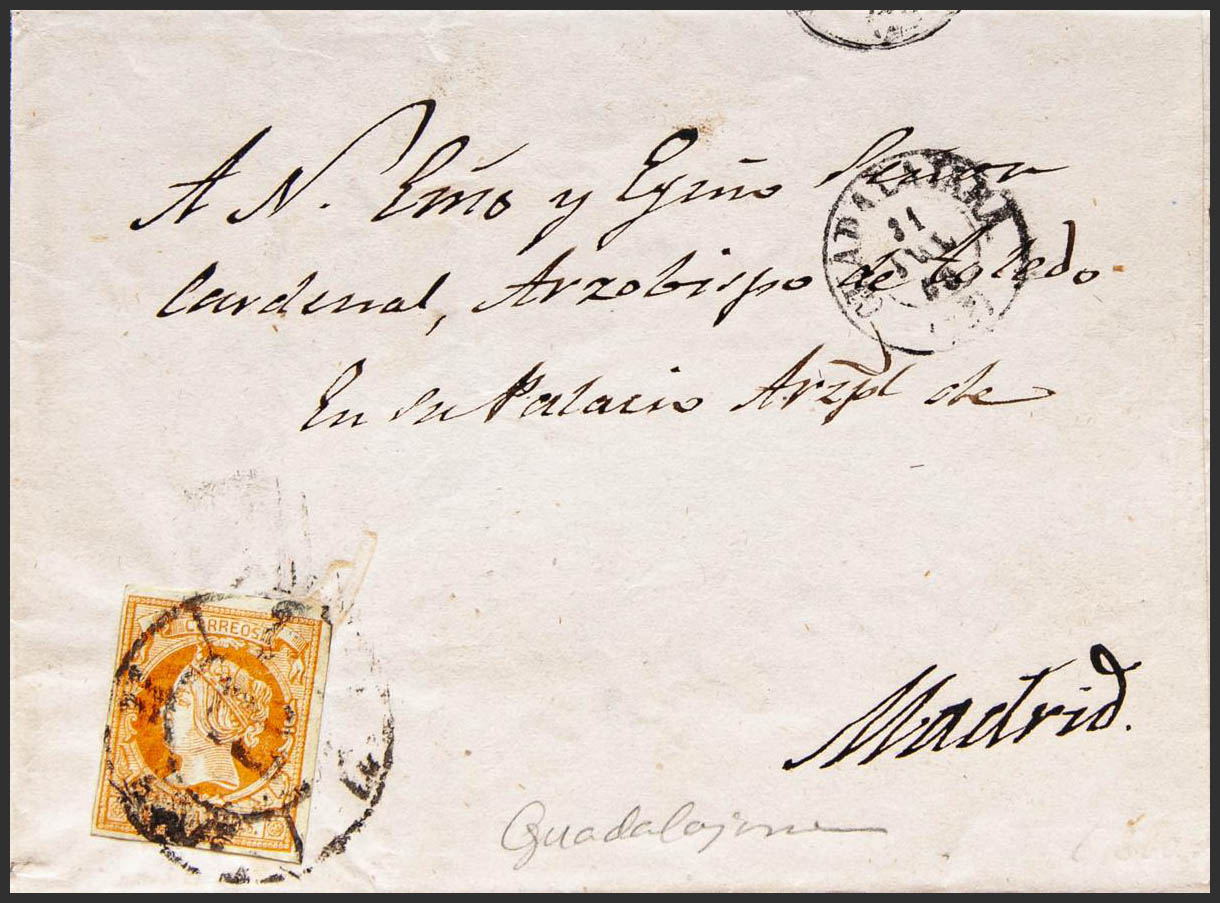 A N. Emo y Exmo Señor
Cardenal, Arzobispo de Toledo
GUADALAJARA
31
JUL
En su Palacio Arzpl de
CORREOS
Madrid.
Guadalajara